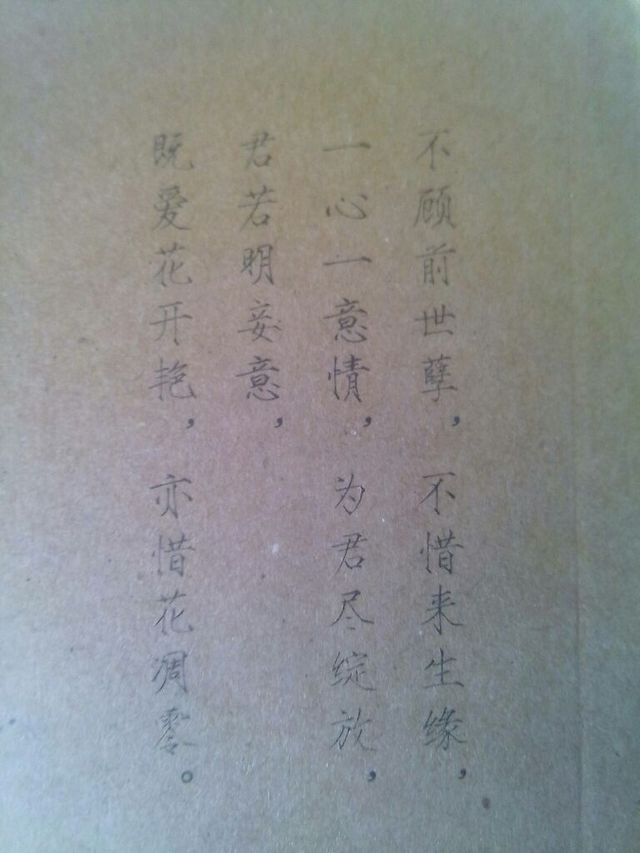 不顾前世孽，不惜来生缘，
一心一意情，为君尽绽放，
君若明妾意，
既爱花开艳，亦惜花凋零。